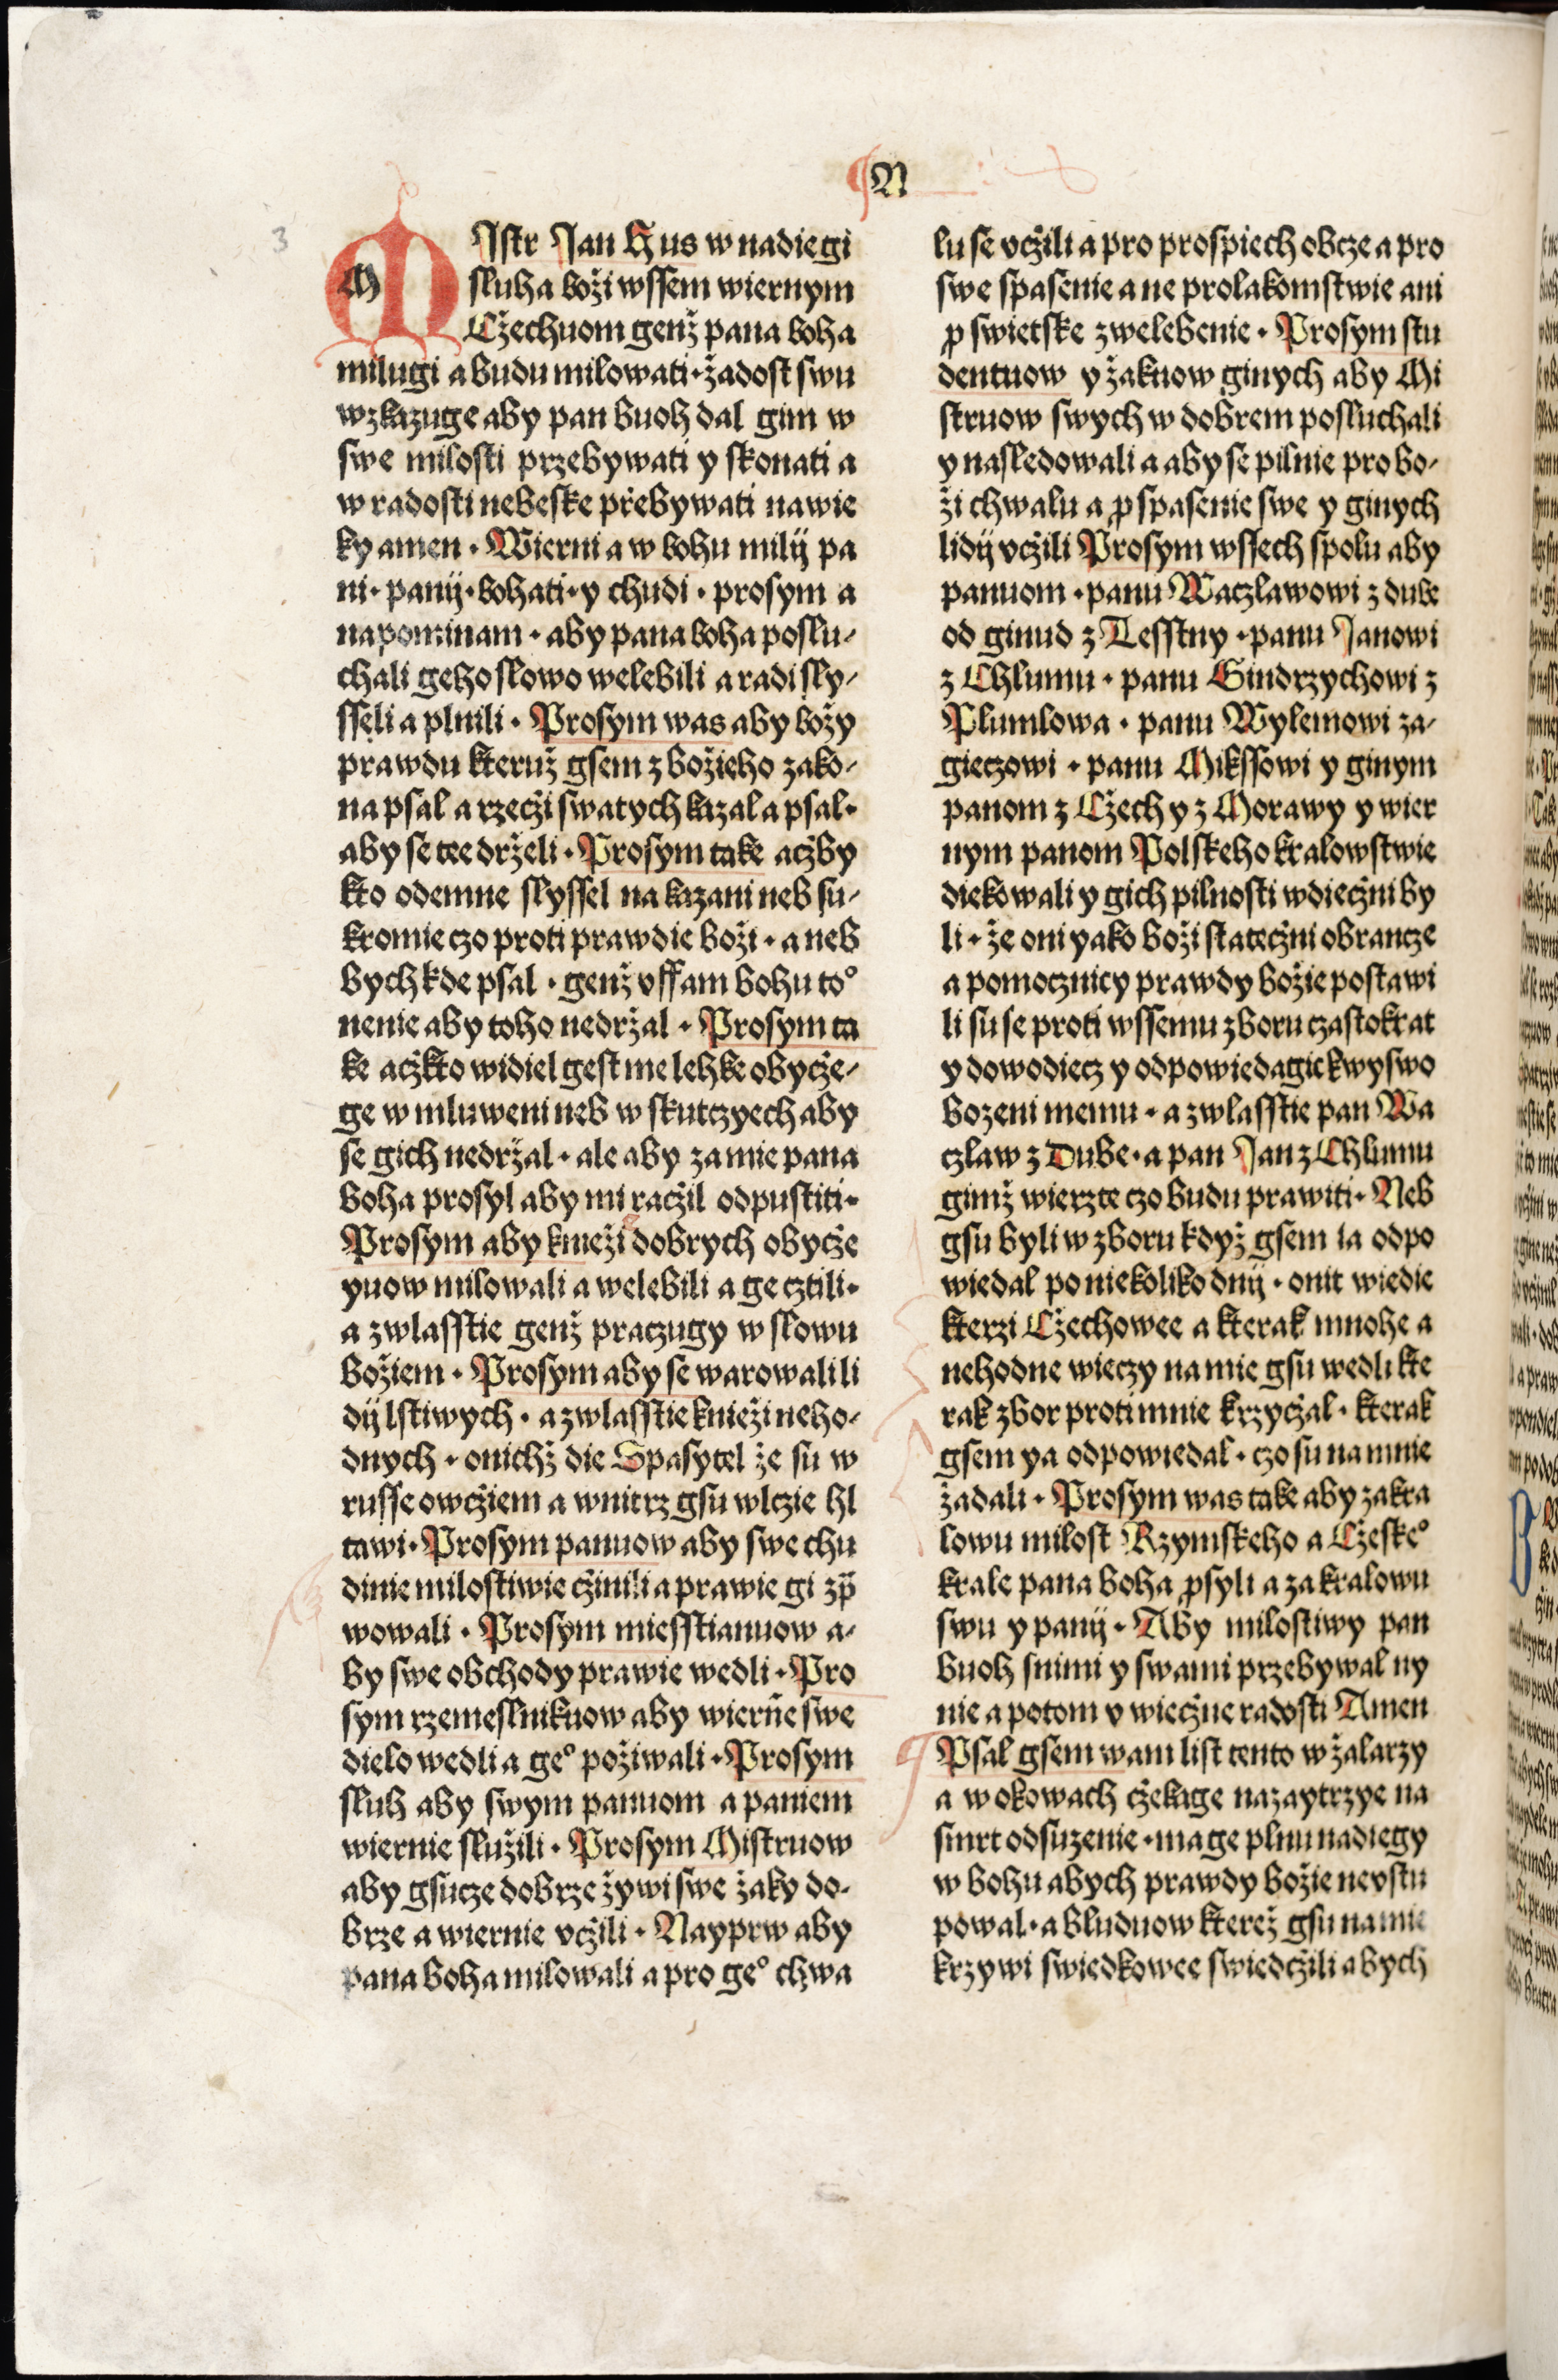 N
3
MIstr Jan Hus w nadiegi
sluha boži wssem wiernym
Cžechuom genž pana boha
milugi a budu milowati · žadost swu
wzkazuge aby pan buoh dal gim w
swe milosti przebywati y skonati a
w radosti nebeske přebywati nawie
ky amen · Wierni a w bohu milij pa
ni · panij · bohati · y chudi · prosym a
napominam · aby pana boha poslu-
chali geho slowo welebili a radi sly-
sseli a plnili · Prosym was aby božy
prawdu kteruž gsem z božieho zako-
na psal a rzečži swatych kazal a psal ·
aby se tee drželi · Prosym take ačžby
kto odemne slyssel na kazani neb su-
kromie czo proti prawdie boži · a neb
bych kde psal · genž vffam bohu to°
nenie aby toho nedržal · Prosym ta
ke ačžkto widiel gest me lehke obycže-
ge w mluweni neb w skutczyech aby
se gich nedržal · ale aby za mie pana
boha prosyl aby mi račžil odpustiti ·
Prosym aby kniezi dobrych obycže
yuow milowali a welebili a ge cztili ·
a zwlasstie genž praczugy w slowu
božiem · Prosym aby se warowali li
dij lstiwych · a zwlasstie kniezi neho-
dnych · onichž die Spasytel že su w
russe owcžiem a wnitrz gsu wlczie hl
tawi · Prosym panuow aby swe chu
dinie milostiwie cžinili a prawie gi zp̄
wowali · Prosym miesstianuow a-
by swe obchody prawie wedli · Pro
sym rzemeslnikuow aby wierñe swe
dielo wedli a ge° požiwali · Prosym
sluh aby swym panuom a paniem
wiernie služili · Prosym Mistruow
aby gsucze dobrze žywi swe žaky do-
brze a wiernie vcžili · Nayprw aby
pana boha milowali a pro ge° chwa
lu se vcžili a pro prospiech obcze a pro
swe spasenie a ne pro lakomstwie ani
ꝓ swietske zwelebenie · Prosym stu
dentuow y žakuow ginych aby Mi
struow swych w dobrem posluchali
y nasledowali a aby se pilnie pro bo-
ži chwalu a ꝓ spasenie swe y ginych
lidij vcžili Prosym wssech spolu aby
panuom · panu Waczlawowi z dube
od ginud z Lesstny · panu Janowi
z Chlumu · panu Gindrzychowi z
Plumlowa · panu Wylemowi za-
gieczowi · panu Mikssowi y ginym
panom z Cžech y z Morawy y wier
nym panom Polskeho kralowstwie
diekowali y gich pilnosti wdiečžni by
li · že oni yako boži statečžni obrancze
a pomocznicy prawdy božie postawi
li su se proti wssemu zboru czastokrat
y dowodiecz y odpowiedagic k wyswo
bozeni memu · a zwlasstie pan Wa
czlaw z Dube · a pan Jan z Chlumu
gimž wierzte czo budu prawiti · Neb
gsu byli w zboru když gsem ia odpo
wiedal po niekoliko dnij · onit wiedie
kterzi Cžechowee a kterak mnohe a
nehodne wieczy na mie gsu wedli kte
rak zbor proti mnie krzycžal · kterak
gsem ya odpowiedal · czo su na mnie
žadali · Prosym was take aby za kra
lowu milost Rzymskeho a Cžeske°
krale pana boha ꝓsyli a za kralowu
swu y panij · Aby milostiwy pan
buoh snimi y swami przebywal ny
nie a potom v wiecžne radosti Amen
Psal gsem wam list tento w žalarzy
a w okowach cžekage nazaytrzye na
smrt odsuzenie · mage plnu nadiegy
w bohu abych prawdy božie nevstu
powal · a bluduow kterež gsu na mie
krzywi swiedkowee swiedcžili abych